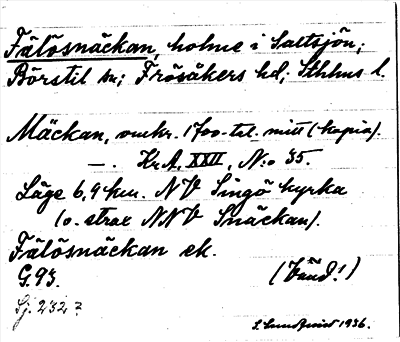 Fälösnäckan, holme i Saltsjön;
Börstil sn; Frösåkers hd; Sthlms l.
Mäckan, omkr. 1700-tal. mitt (kopia).
—. Kr.A, XXII, N:o 35.
Läge 6,9 km. NV Singö kyrka
(o. strax NNV Snäckan).
Fälösnäckan ek.
G. 93. (Vänd!)
Sj. 232?
S. Lundqvist 1936.